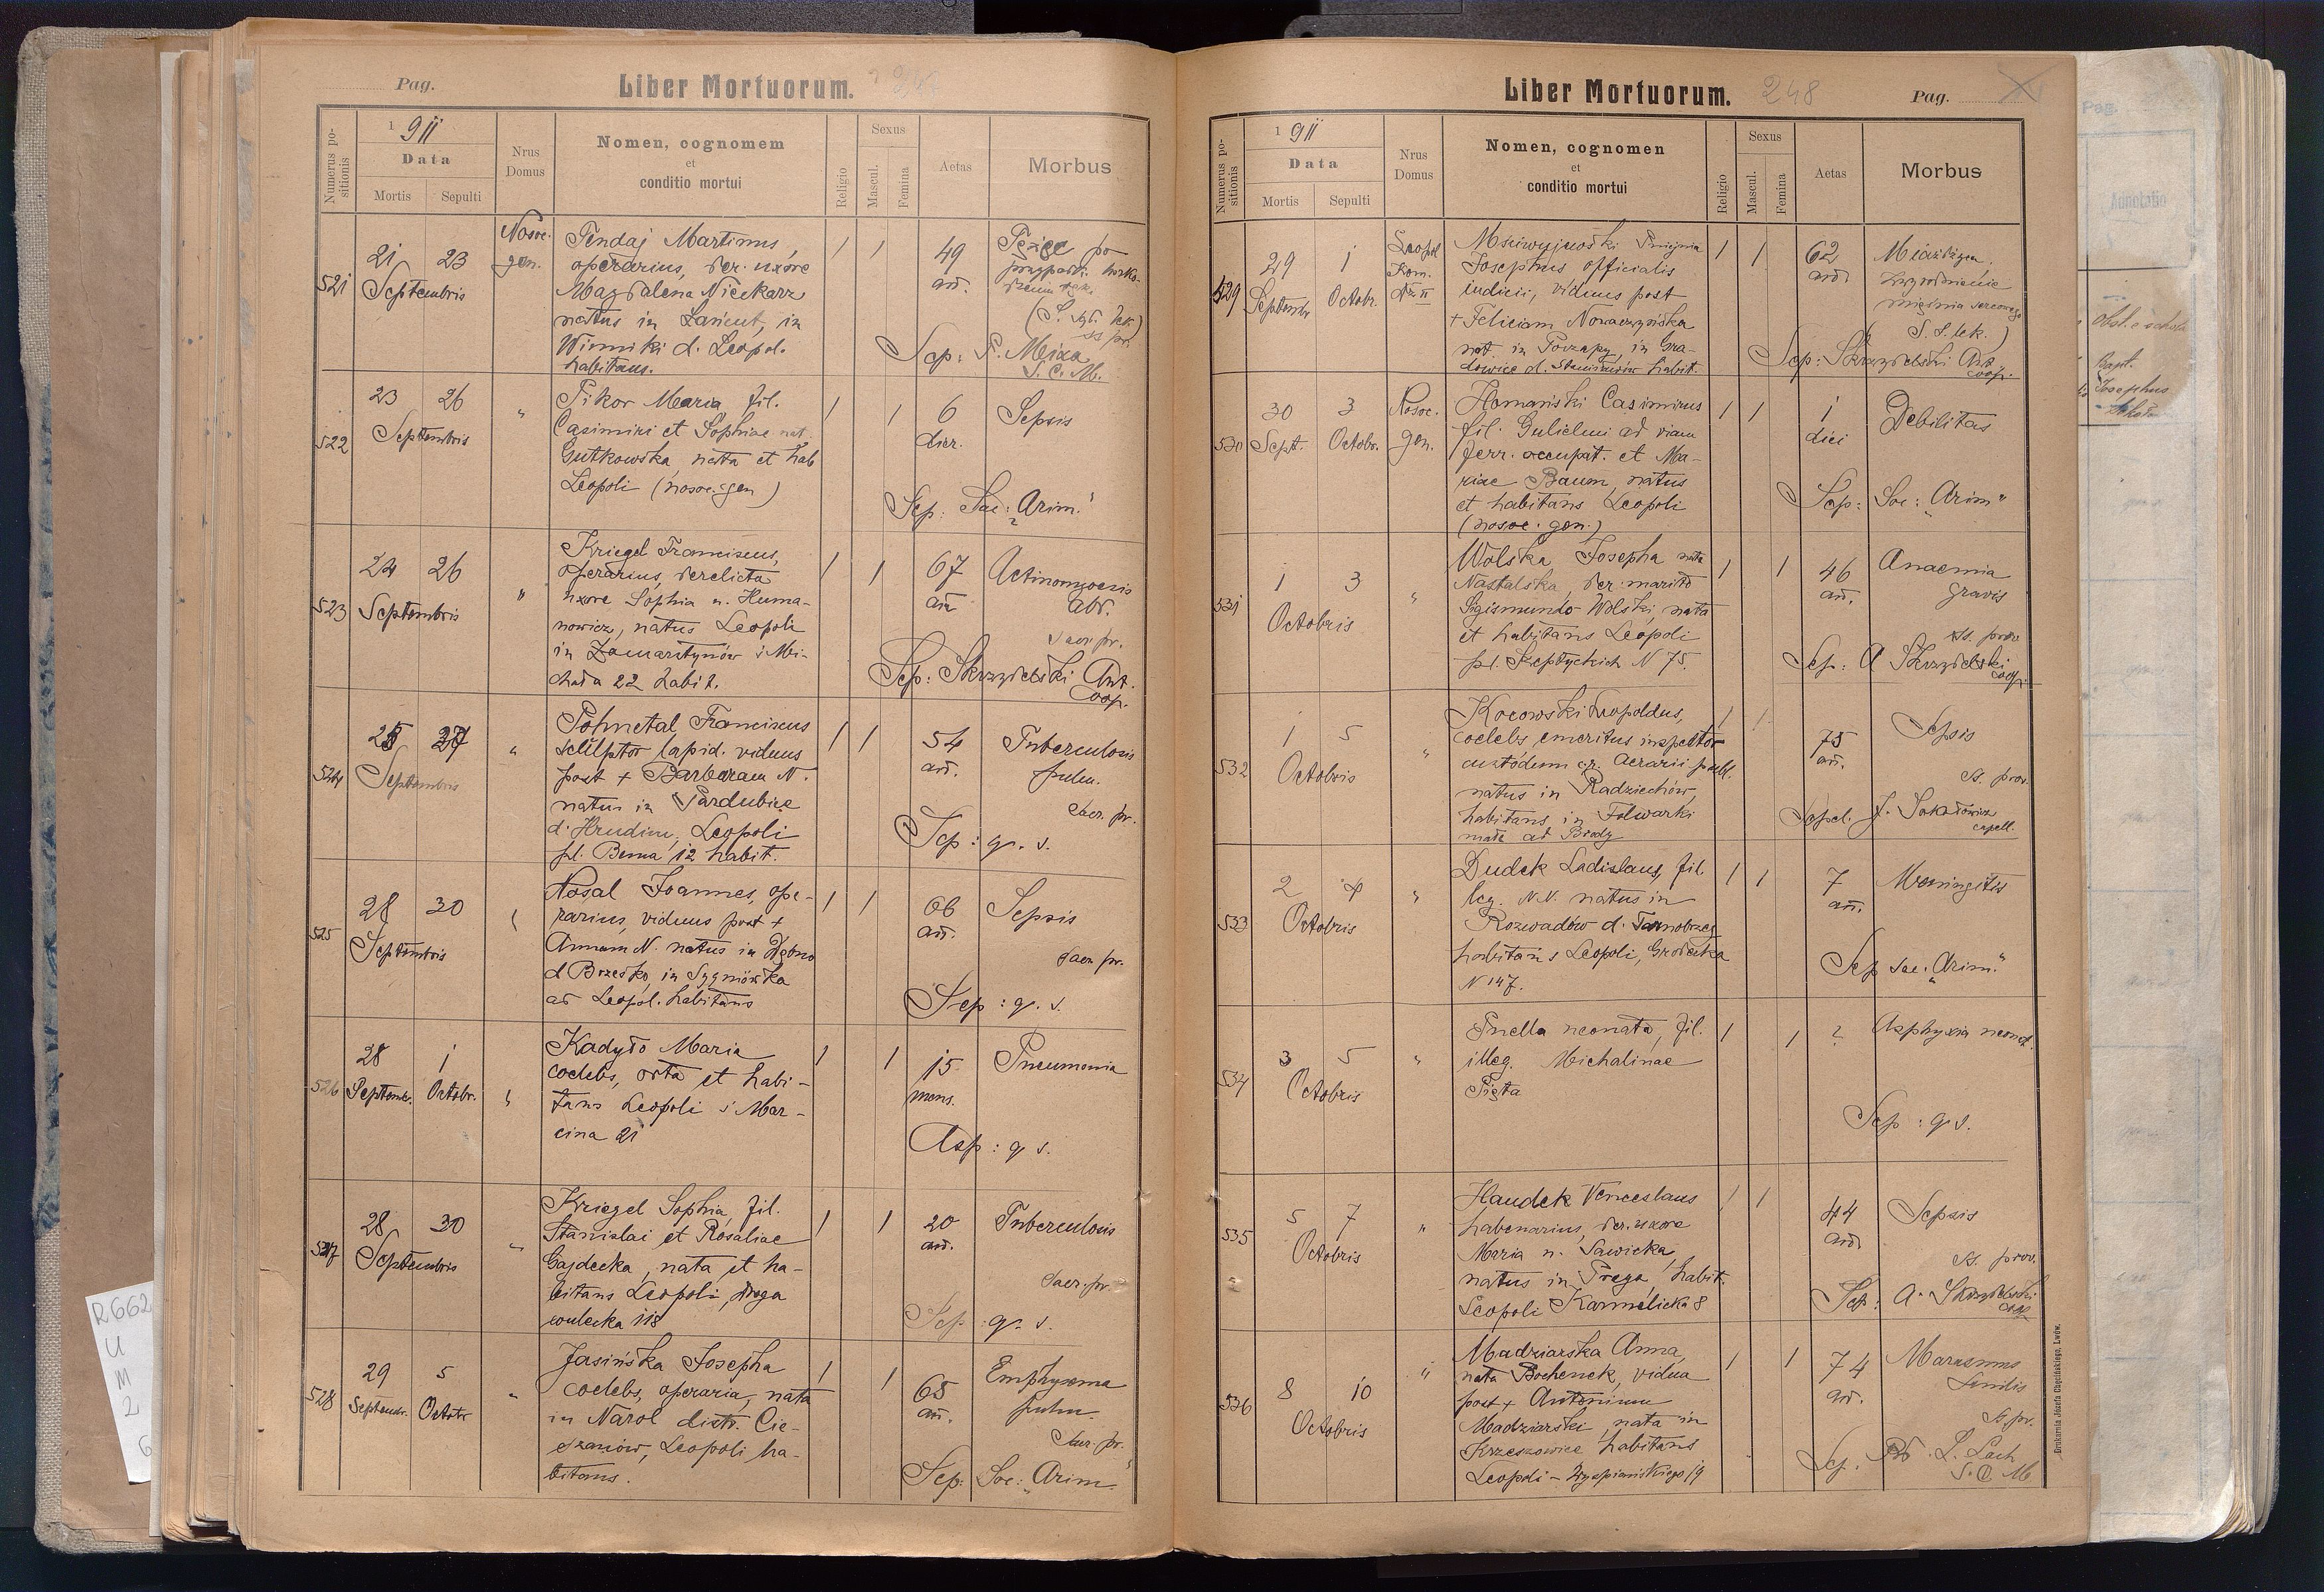 Pag.
Liber Mortuorum.
Numerus positionis
1911
Data
Mortis
Sepulti
Nrus Domus
Nomen, cognomem
et
conditio mortui
Religio
Sexus
Mascul.
Femina
Aetas
Morbus
521
21 23
Septembris
Nosoc. gen.
Pendaj Martinus,
operarius, der. uxore
Magdalena Nieckarz
natus in Łańcut, in
Winniki d. Leopol.
habitans.
1 1
49
an.
po
Sep: P. Mejza
S. C. M.
522
23 26
Septembris
"
Pikor Maria fil.
Casimiri et Sophiae nat.
Gutkowska, nata et hab
Leopoli (nosoc. gen)
1 1
6
dier.
Sepsis
Sep: Soc: "Arim."
523
24 26
Septembris
"
Kriegel Franciscus,
operarius, derelicta
uxore Sophia n. Huma-
nowicz, natus Leopoli
in Zamarstynów ś Mi-
chała 22 habit.
1 1
67
an
Actinomycosis
abd.
Sacr. pr.
Sep: Skrzydelski Ant.
coop.
524
27
Septembris
"
Pohnetal Franciscus
sculptor lapid. viduus
post + Barbaram N.
natus in Pardubice
d. Hrudim, Leopoli
pl. Bema 12 habit.
1 1
54
an.
Tuberculosis
pulm.
Sacr. pr.
Sep: q. s.
525
28 30
Septembris
Nosal Joannes, ope-
rarius, viduus post +
Annam N. natus in Dębno
d Brzesko, in Sygniówka
ad Leopol. habitans
1 1
66
an.
Sepsis
Sacr. pr.
Sep: q. s.
526
28 1
Septemb. Octobr.
Kadyło Maria
coelebs, orta et habi-
tans Leopoli ś Mar-
cina 21
1 1
15
mens.
Pneumonia
Sep: q s.
527
28 30
Septembris
"
Kriegel Sophia, fil.
Stanislai et Rosaliae
Gajdecka, nata et ha-
bitans Leopoli, droga
wulecka 118
1 1
20
an.
Tuberculosis
Sacr. pr.
Sep: q. s.
528
29 5
Septembr. Octobr
"
Jasińska Josepha
coelebs, operaria, nata
in Narol distr. Cie-
szanów, Leopoli ha-
bitans.
1 1
65
an.
Emphysema
pulm.
Sacr. pr.
Sep: Soc: "Arim"
Liber Mortuorum.
248
Pag.
Numerus positionis
1911
Data
Mortis
Sepulti
Nrus Domus
Nomen, cognomen
et
conditio mortui
Religio
Sexus
Mascul.
Femina
Aetas
Morbus
529
29 1
Septembr Octobr.
Josephus officialis
iudicii, viduus post
+ Feliciam
nat. in in Gra-
dowice d. habit.
1 1
62
an.
zwyrodnienie
mięśnia sercowego
Sep: Skrzydelski Ant.
coop.
530
30 3
Sept. Octobr.
Nosoc. gen.
Homański Casimirus
fil. Gulielmi ad viam
ferr. occupat. et Ma-
riae Baum, natus
et habitans Leopoli
(nosoc. gen.)
1 1
1
diei
Debilitas
Sep: Soc: "Arim"
531
1 3
Octobris
"
Wolska Josepha nata
Nastalska, der. marito
Sigismundo Wolski, nata
et habitans Leopoli
pl. Szeptyckich N 75.
1 1
46
an.
Anaemia
gravis
ss. prov
Sep: A Skrzydelski
coop.
532
1 5
Octobris
"
Kocowski Leopoldus,
coelebs, emeritus inspector
custodum c.r. Aerarii publ.
natus in Radziechów,
habitans in Folwarki
małe ad Brody
1 1
75
an.
Sepsis
ss. prov.
Sepel. J. Sokołowicz
capell.
533
2 4
Octobris
"
Dudek Ladislaus, fil.
leg. N.N. natus in
Rozwadów d. Tarnobrzeg
habitans Leopoli, Grodecka
N 147.
1 1
7
an.
Meningitis
Sep soc. "Arim."
534
3 5
Octobris
"
Puella neonata, fil.
illeg. Michalinae
Pięta
1 1
?
Asphyxia neonat.
Sep: q s.
535
5 7
Octobris
"
Haudek Venceslaus
habenarius, der. uxore
Maria n. Sawicka,
natus in Praga, habit.
Leopoli Karmelicka 8
1 1
44
an.
Sepsis
ss. prov.
Sep: A. Skrzydelski
coop.
536
8 10
Octobris
"
Madziarska Anna,
nata Bochenek, vidua
post + Antonium
Madziarski, nata in
Krzeszowice habitans
Leopoli - Wyspiańskiego 19
1 1
74
an.
Marasmus
senilis
ss. pr.
Sep. L. Lach
S. C. M
Drukarnia Józefa Chęcińskiego, Lwów.
Pag.
Annotatio
Bapt.
Josephus
R662
U
M
2
6